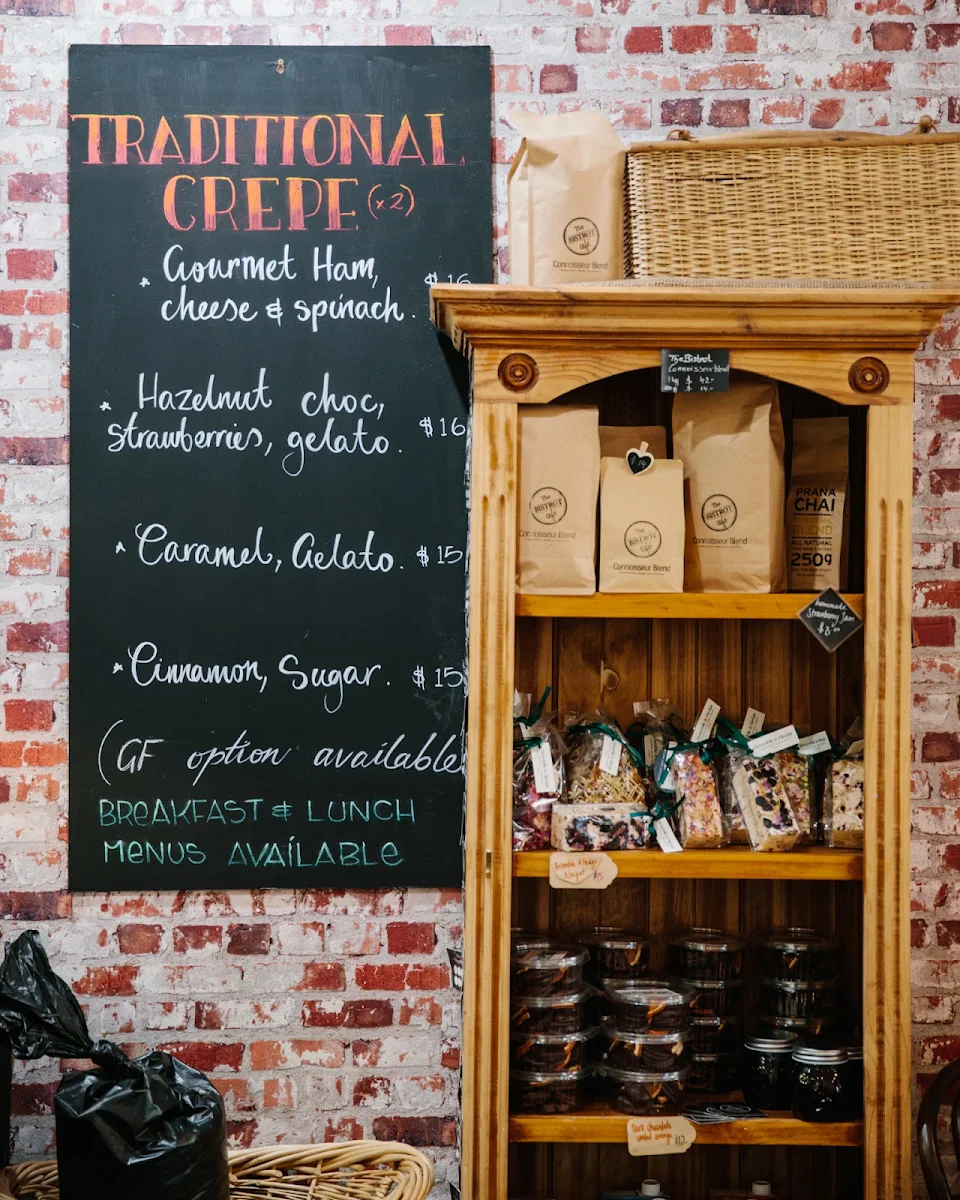 TRADITIONAL
CREPE (x2)
Gourmet Ham,
cheese & spinach. $16
Hazelnut choc,
strawberries, gelato. $16
Caramel, Gelato. $15
Cinnamon, Sugar. $15
(GF option available
BREAKFAST & LUNCH
MENUS AVAILABLE
The
BISTROT
café
Connoisseur Blend
The Bistrot
Connoisseur blend
1kg $ 42.-
The
BISTROT
café
Connoisseur Blend
The
BISTROT
café
Connoisseur Blend
The
BISTROT
café
Connoisseur Blend
PRANA
CHAI
BLEND
ALL NATURAL
250g
homemade
Strawberry Jam
$8.00
Bramble & Hedge
Nougat
Dark chocolate
coated orange
$12